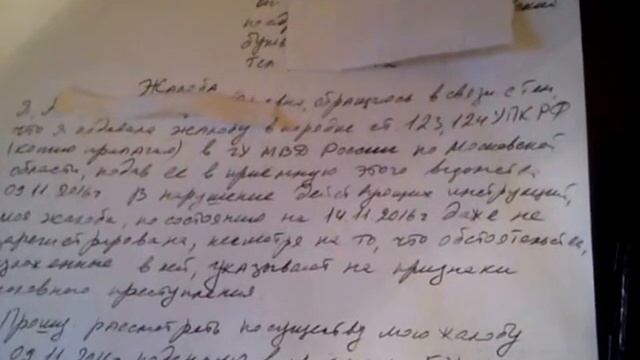 Жалоба
Я, обращаюсь в связи с тем,
что я подавала жалобу в порядке ст. 123, 124 УПК РФ
(копию прилагаю) в ГУ МВД России по Московской
области, подав ее в приемную этого ведомства
09.11.2016г В нарушение действующих инструкций,
моя жалоба, по состоянию на 14.11.2016г даже не
зарегистрирована, несмотря на то, что обстоятельства,
изложенные в ней, указывают на признаки
уголовного преступления.
Прошу рассмотреть по существу мою жалобу
09.11.2016